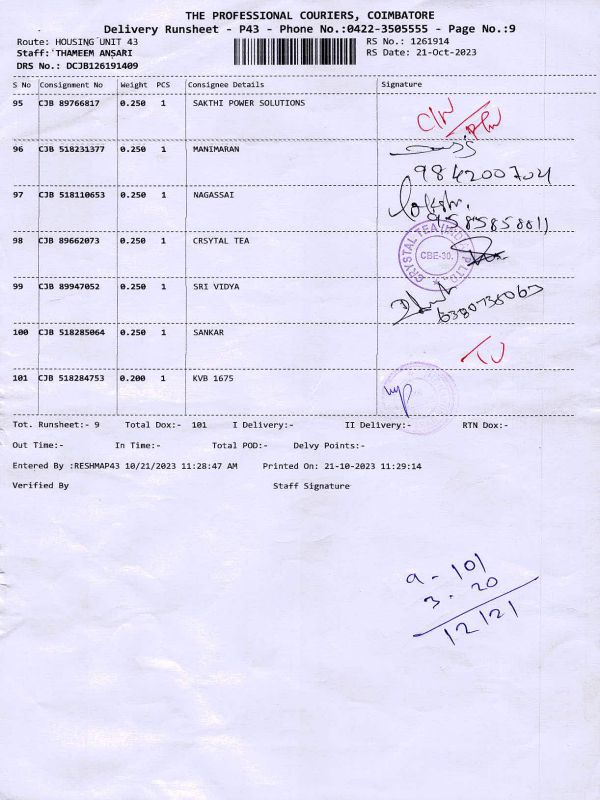 THE PROFESSIONAL COURIERS, COIMBATORE
Delivery Runsheet - P43 - Phone No.:0422-3505555 - Page No.:9
Route: HOUSING UNIT 43
RS No.: 1261914
Staff: THAMEEM ANSARI
RS Date: 21-Oct-2023
DRS No.: DCJB126191409
S No Consignment No Weight PCS Consignee Details Signature
95 CJB 89766817 0.250 1 SAKTHI POWER SOLUTIONS
96 CJB 518231377 0.250 1 MANIMARAN
97 CJB 518110653 0.250 1 NAGASSAI
9585858011
98 CJB 89662073 0.250 1 CRSYTAL TEA
CRYSTAL TEA
CBE-30.
99 CJB 89947052 0.250 1 SRI VIDYA
100 CJB 518285064 0.250 1 SANKAR
101 CJB 518284753 0.200 1 KVB 1675
Tot. Runsheet:- 9 Total Dox:- 101 I Delivery:- II Delivery:- RTN Dox:-
Out Time:- In Time:- Total POD:- Delvy Points:-
Entered By :RESHMAP43 10/21/2023 11:28:47 AM Printed On: 21-10-2023 11:29:14
Verified By Staff Signature
9 - 101
3 - 20
12/121